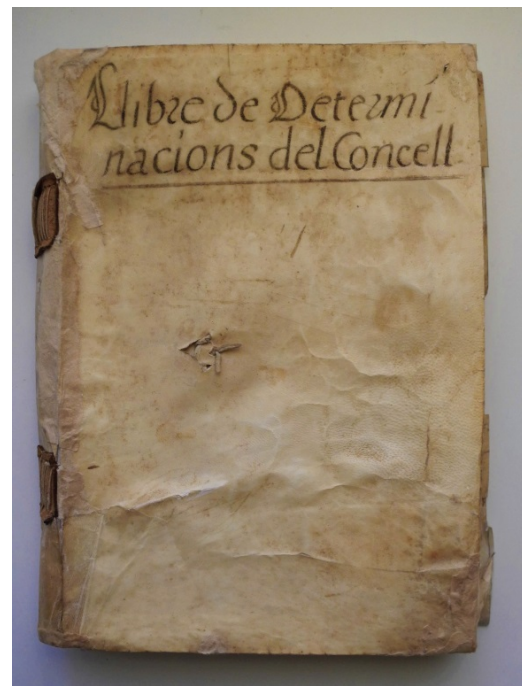 Llibre de Determi-
nacions del Concell